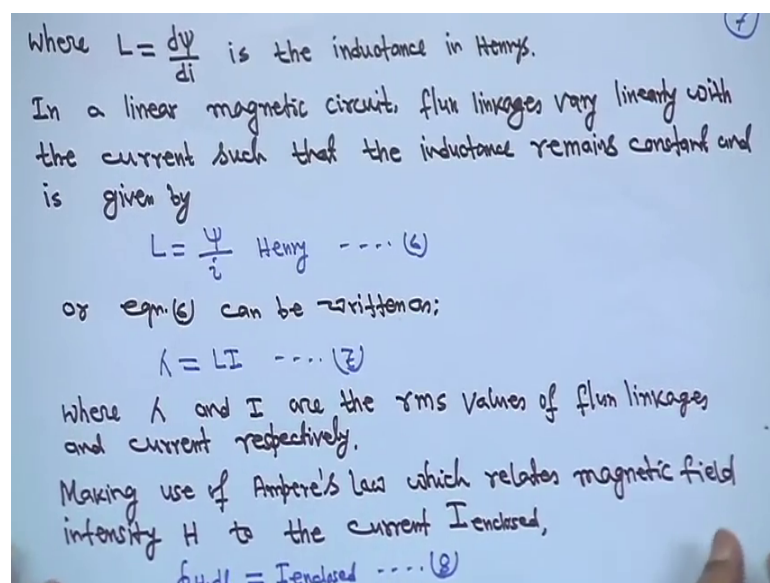 7
where L = dψ/di is the inductance in Henrys.
In a linear magnetic circuit, flux linkages vary linearly with
the current such that the inductance remains constant and
is given by
L = ψ/i Henry ---- (6)
or eqn.(6) can be written as;
λ = LI ---- (7)
where λ and I are the rms values of flux linkages
and current respectively.
Making use of Ampere's law which relates magnetic field
intensity H to the current Ienclosed,
∮H.dl = Ienclosed ---- (8)